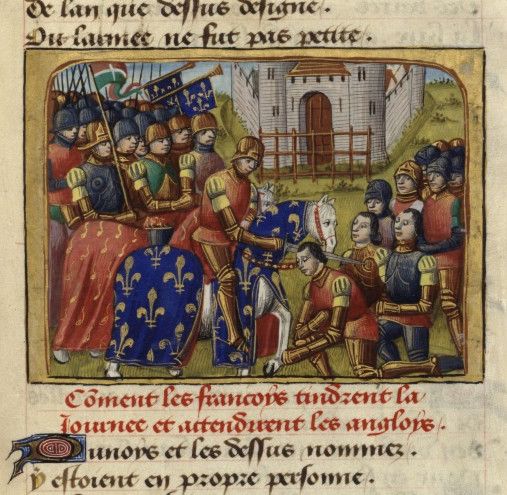 De lan que dessus designe.
Ou larmee ne fut pas petite.
Cõment les francoys tindrent la
Journee et attendirent les angloys.
Dunoys et les dessus nommez.
y estoient en propre personne.